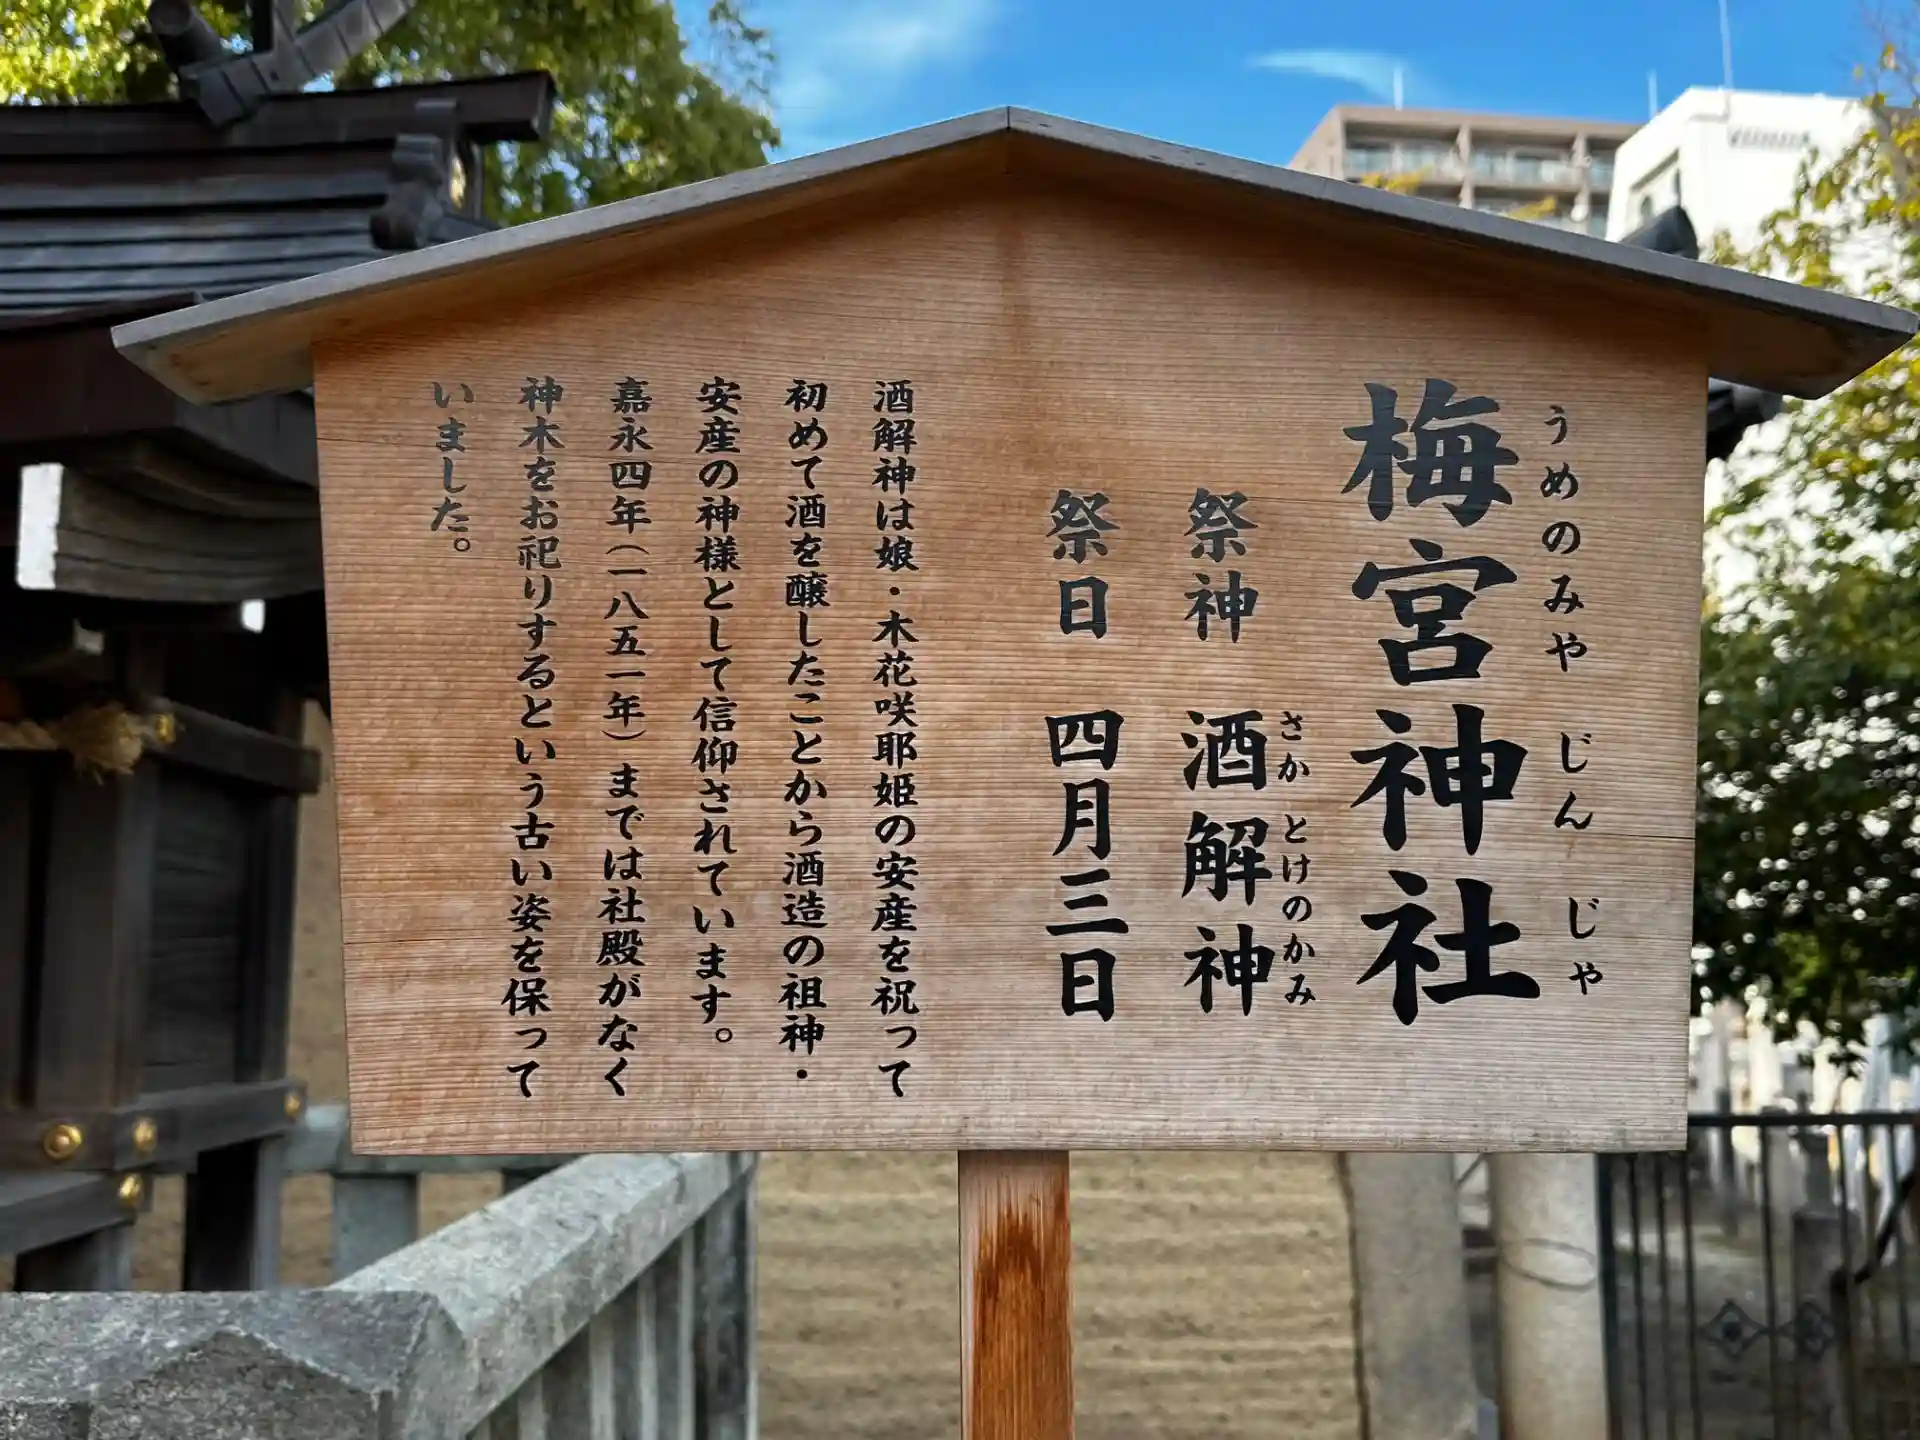 うめのみやじんじゃ
梅宮神社
さかとけのかみ
祭神 酒解神
祭日 四月三日
酒解神は娘・木花咲耶姫の安産を祝って
初めて酒を醸したことから酒造の祖神・
安産の神様として信仰されています。
嘉永四年（一八五一年）までは社殿がなく
神木をお祀りするという古い姿を保って
いました。